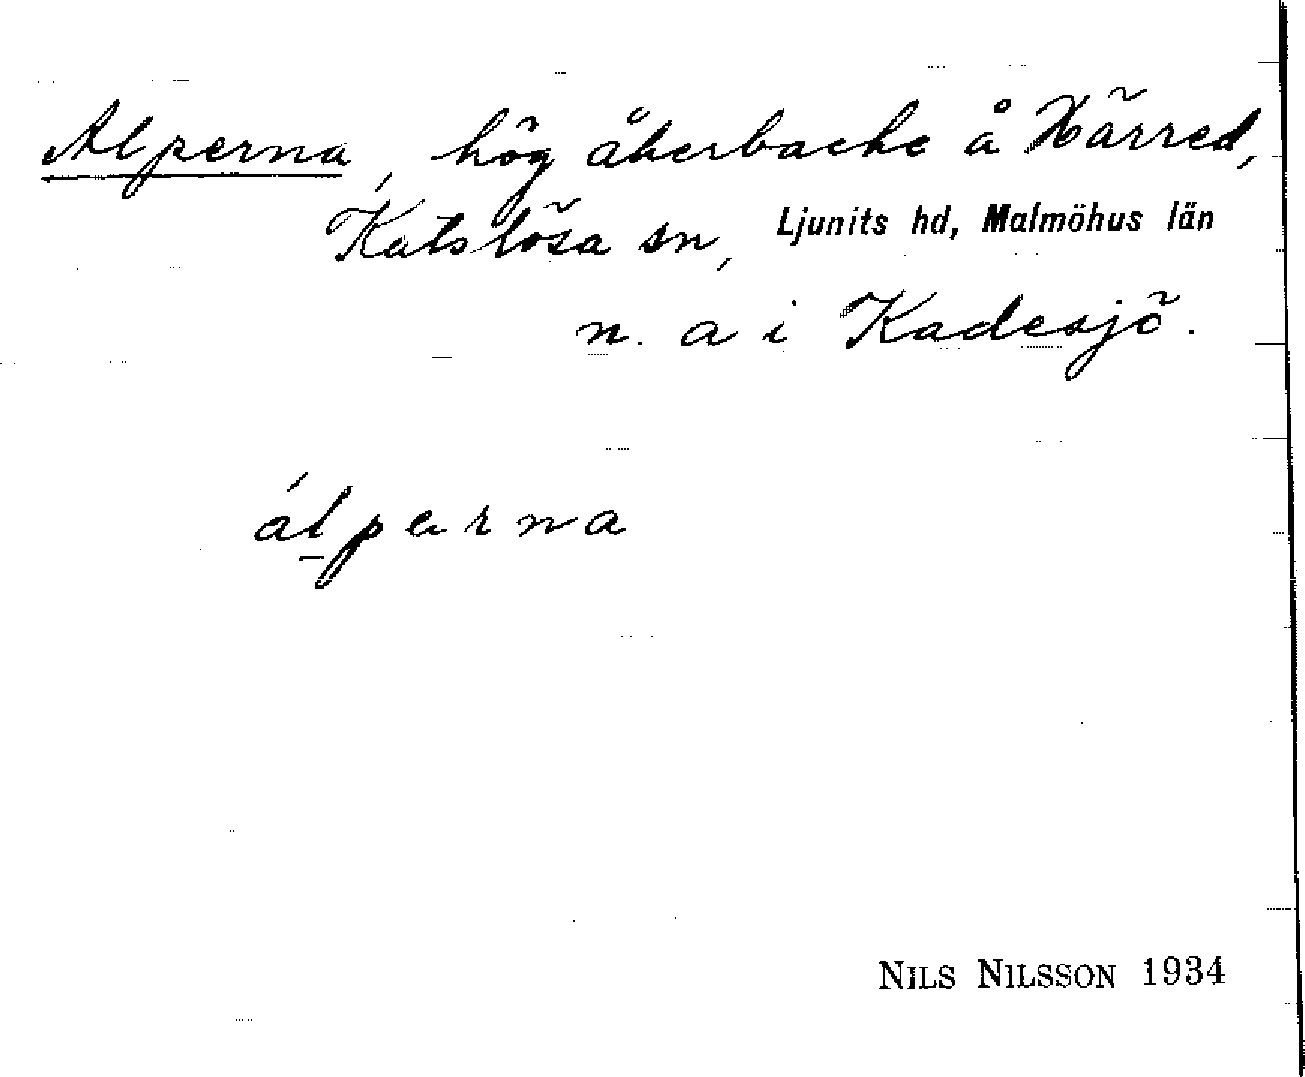 Alperna, hög åkerbacke å Härred,
Katslösa sn, Ljunits hd, Malmöhus län
n. a i Kadesjö.
álperna
NILS NILSSON 1934